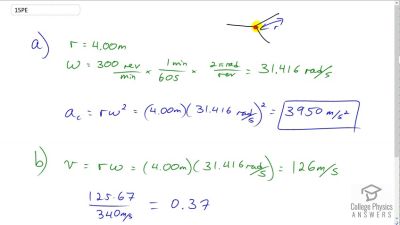 15PE
r
a) r = 4.00m
ω = 300 rev/min × 1 min/60s × 2π rad/rev = 31.416 rad/s
a_c = rω² = (4.00m)(31.416 rad/s)² = 3950 m/s²
b) v = rω = (4.00m)(31.416 rad/s) = 126 m/s
125.67/340 m/s = 0.37
College Physics
ANSWERS